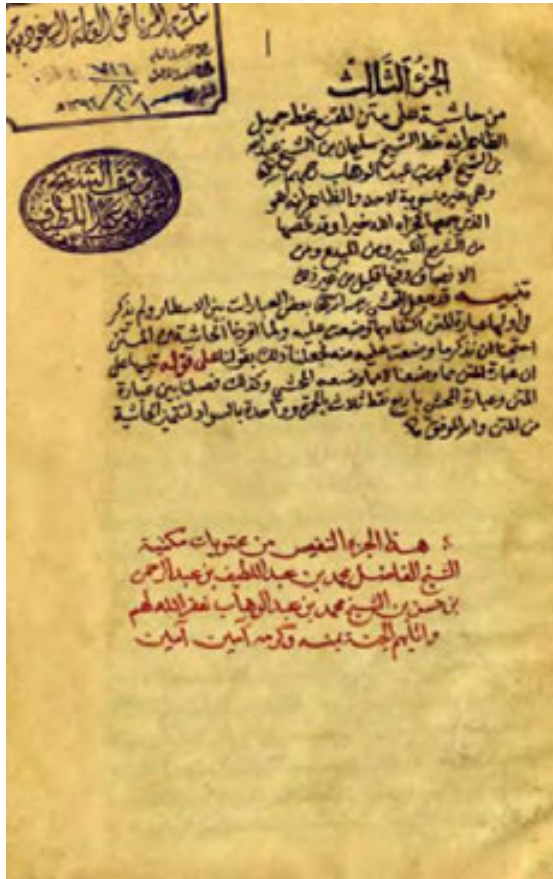 مكتبة الرياض العامة السعودية
٧١٦
١٣٩٢
وقف الشيخ
محمد بن عبد اللطيف
الجزء الثالث
من حاشية على متن المقنع بخط جميل
الظاهر انه خط الشيخ سليمان بن الشيخ عبد الله
بن الشيخ محمد بن عبد الوهاب رحمهم الله
وهي غير منسوبة لاحد والظاهر انه هو
الذي جمعها جزاه الله خيرا وقد لخصها
من الشرح الكبير ومن المبدع ومن
الانصاف وفيها قليل من غير ذلك
تنبيه قد جعل المحشي رحمه الله بعض العبارات بين الاسطار ولم يذكر
في اولها عبارة المتن اكتفاء بما وضعت عليه ولما افردنا الحاشية عن المتن
احتجنا ان نذكر ما وضعت عليه منه فجعلنا ذلك بقولنا على قوله تنبيها على
ان عبارة المتن مما وضعنا لا مما وضعه المحشي وكذلك فصلنا بين عبارة
المتن وعبارة المحشي باربع نقط ثلاث بالحمرة وواحدة بالسواد لتتميز الحاشية
من المتن والله الموفق
هذا الجزء النفيس من محتويات مكتبة
الشيخ الفاضل محمد بن عبد اللطيف بن عبد الرحمن
بن حسن بن الشيخ محمد بن عبد الوهاب غفر الله لهم
واثابهم الجنة بمنه وكرمه آمين آمين